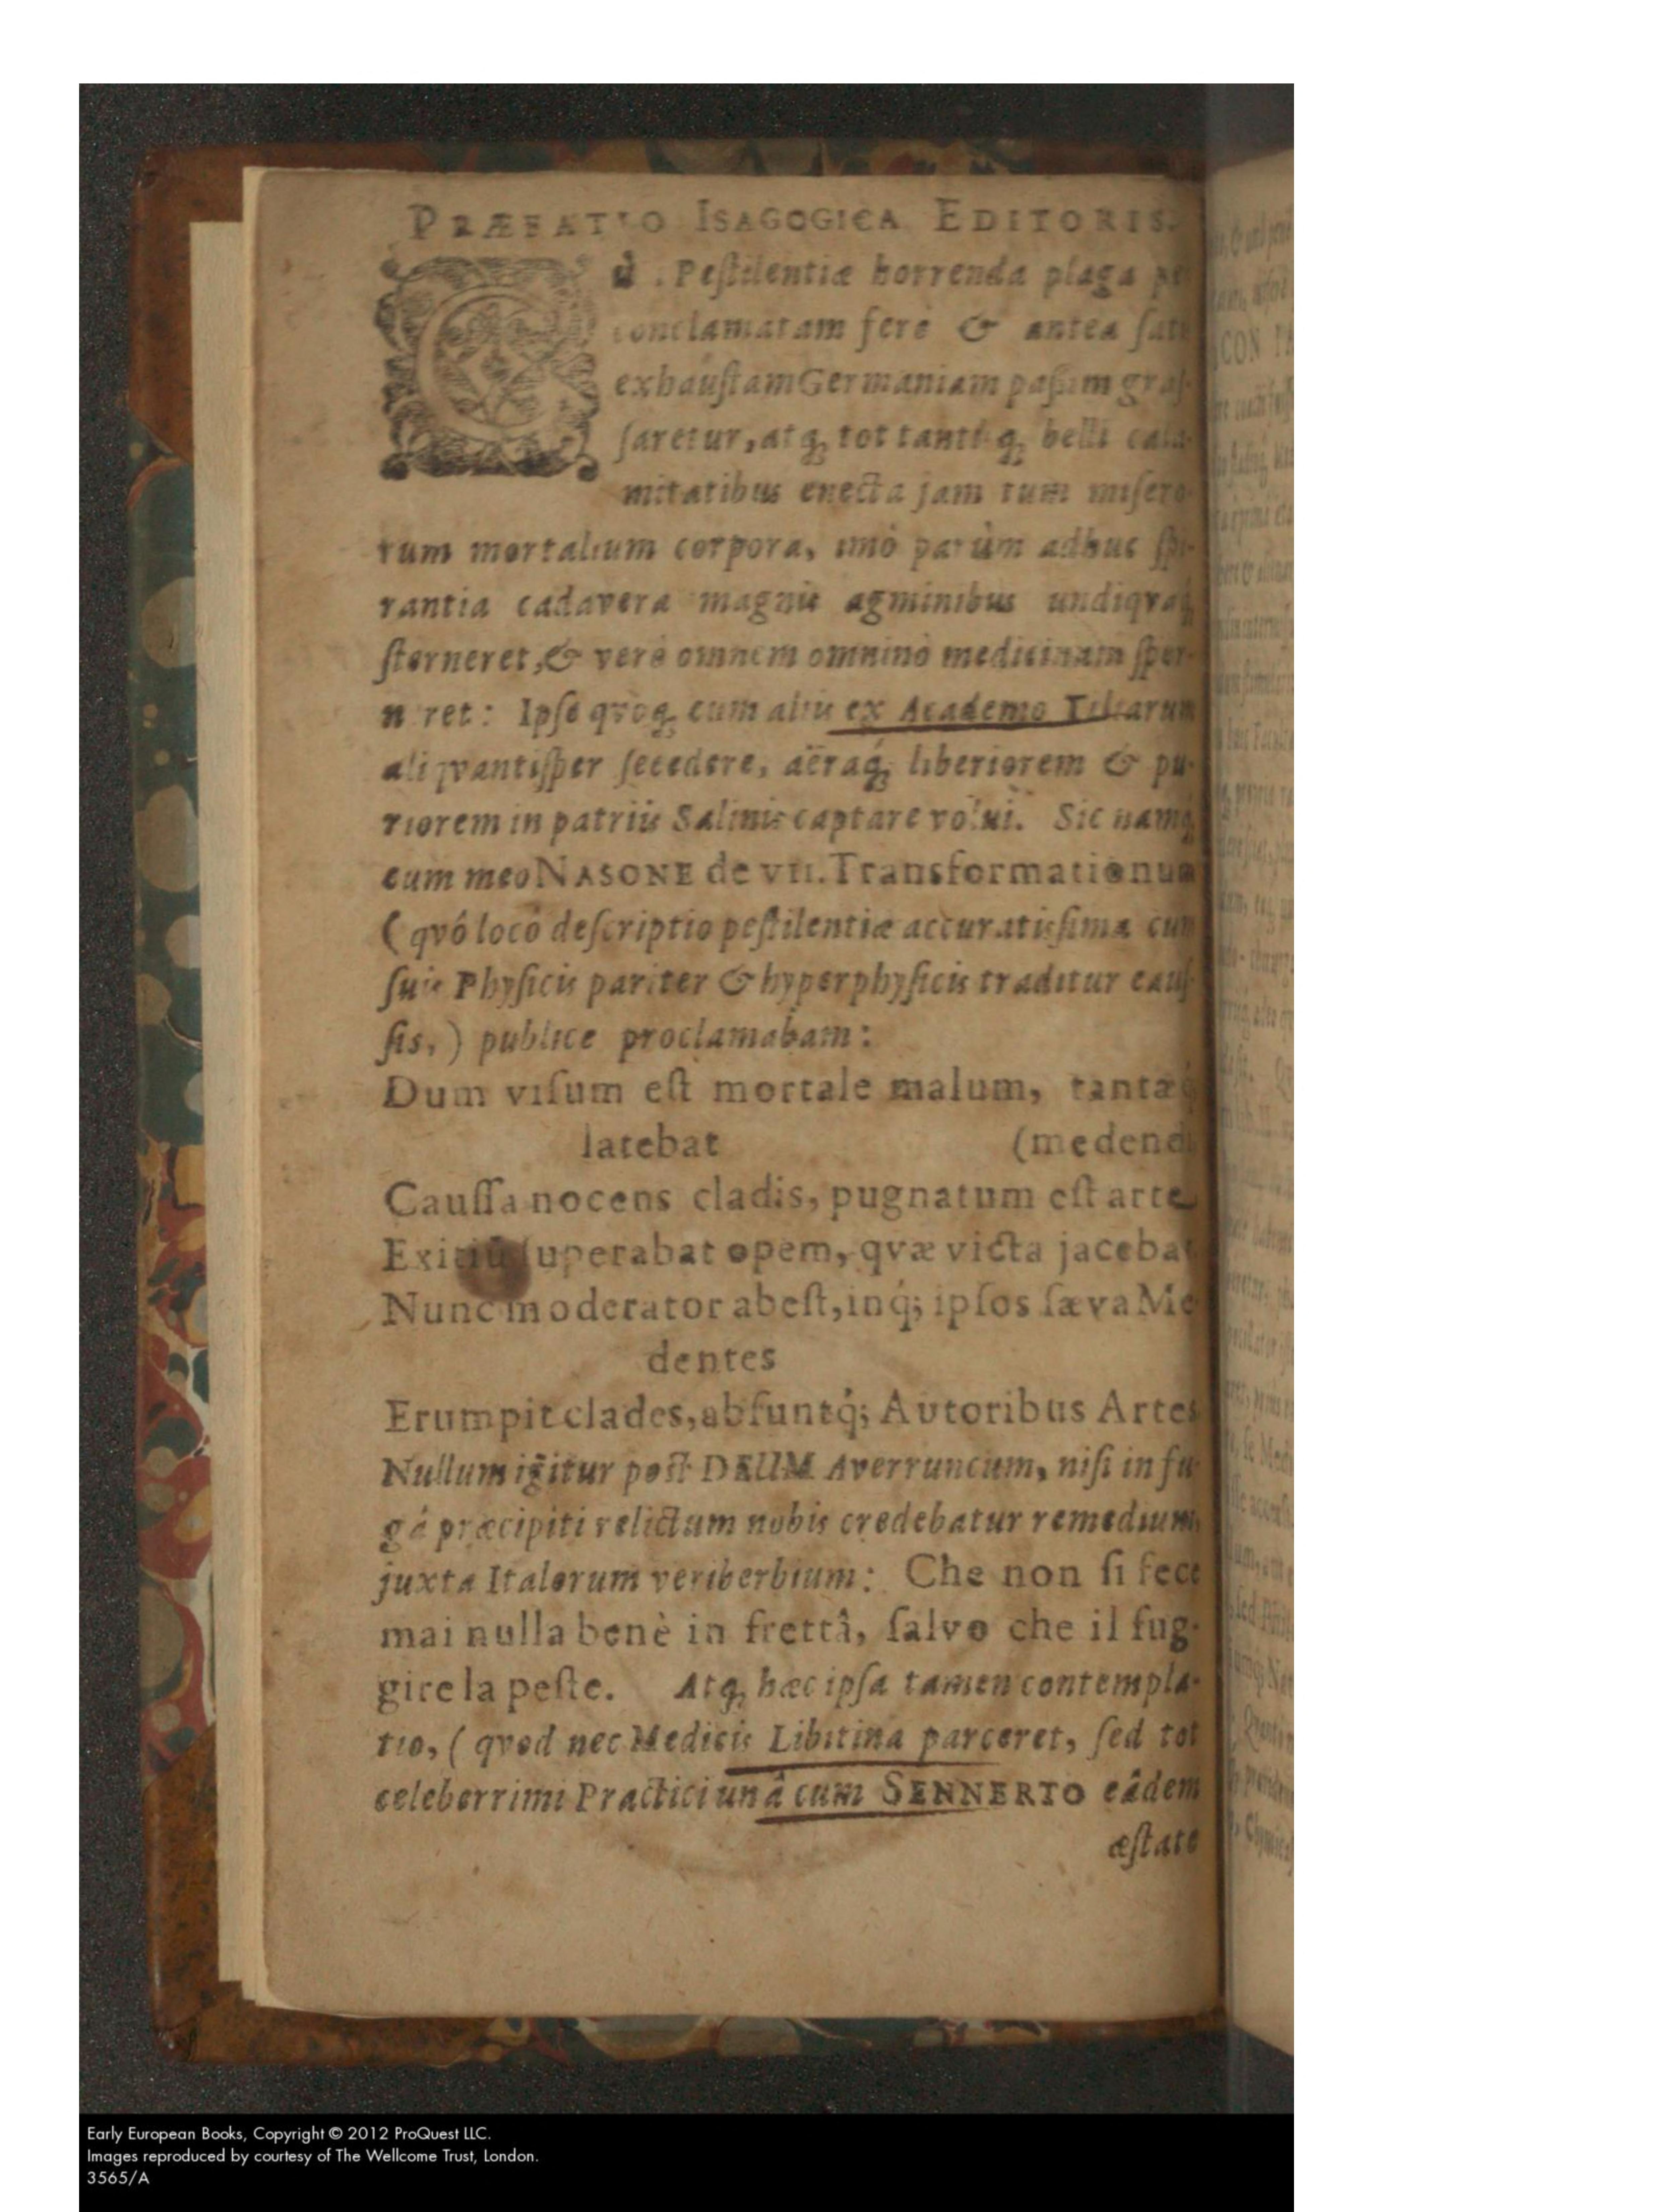 PRÆFATIO ISAGOGICA EDITORIS.
Cù. Peſtilentiæ horrenda plaga
conclamatam ferè & antea
exhauſtam Germaniam paßim graſ-
ſaretur, atq; tot tantiſq; belli cala-
mitatibus enecta jam tum miſero-
rum mortalium corpora, imò parùm adhuc ſpi-
rantia cadavera magnis agminibus undiqvaq́;
ſterneret, & verè omnem omninò medicinam ſper-
neret: Ipſe qvoq; cum aliis ex Academo
aliqvantiſper ſecedere, aëraq́; liberiorem & pu-
riorem in patriis Salinis captare volui. Sic namq́;
cum meo NASONE de VII. Transformationum
(qvô locô deſcriptio peſtilentiæ accuratisſima cum
ſuis Phyſicis pariter & hyperphyſicis traditur cauſ-
ſis,) publice proclamabam:
Dum viſum eſt mortale malum, tantæq́;
latebat (medendi
Cauſſa nocens cladis, pugnatum eſt arte
Exitiū ſuperabat opem, qvæ victa jacebat
Nunc moderator abeſt, inq́; ipſos ſæva Me-
dentes
Erumpit clades, abſuntq́; Autoribus Artes
Nullum igitur poſt DEUM Averruncum, niſi in fu-
gâ præcipiti relictum nobis credebatur remedium,
juxta Italorum veriberbium: Che non ſi fece
mai nulla benè in frettâ, ſalvo che il fug-
gire la peſte. Atq; hæc ipſa tamen contempla-
tio, (qvod nec Medicis Libitina parceret, ſed tot
celeberrimi Practici unâ cum SENNERTO eâdem
æſtate
Early European Books, Copyright © 2012 ProQuest LLC.
Images reproduced by courtesy of The Wellcome Trust, London.
3565/A